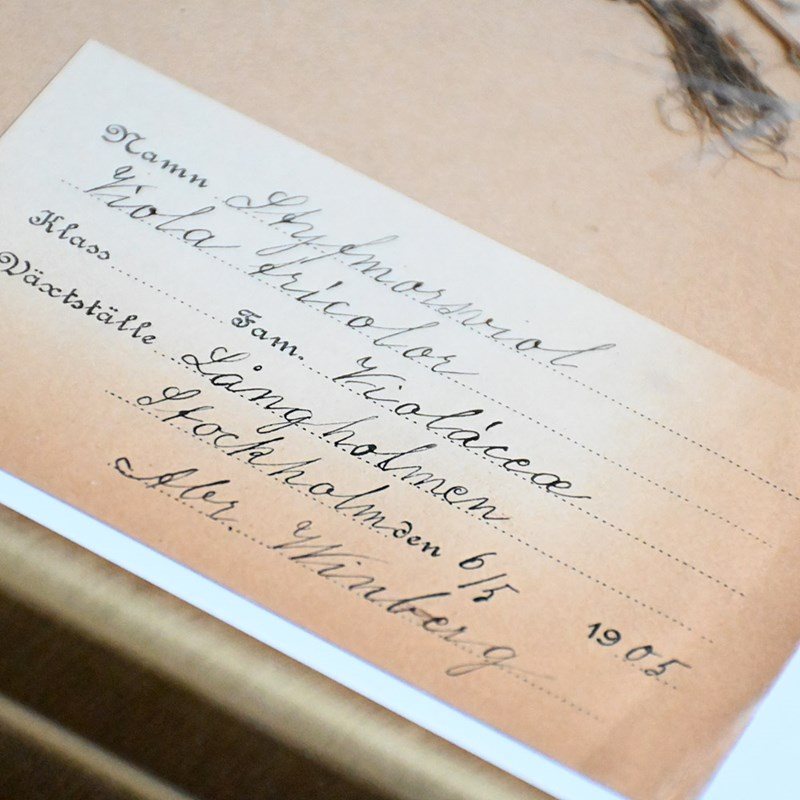 Namn Styfmorsviol
Viola tricolor
Klass Fam. Violáceæ
Växtställe Långholmen
Stockholm den 6/5 1905
Abr. Winberg